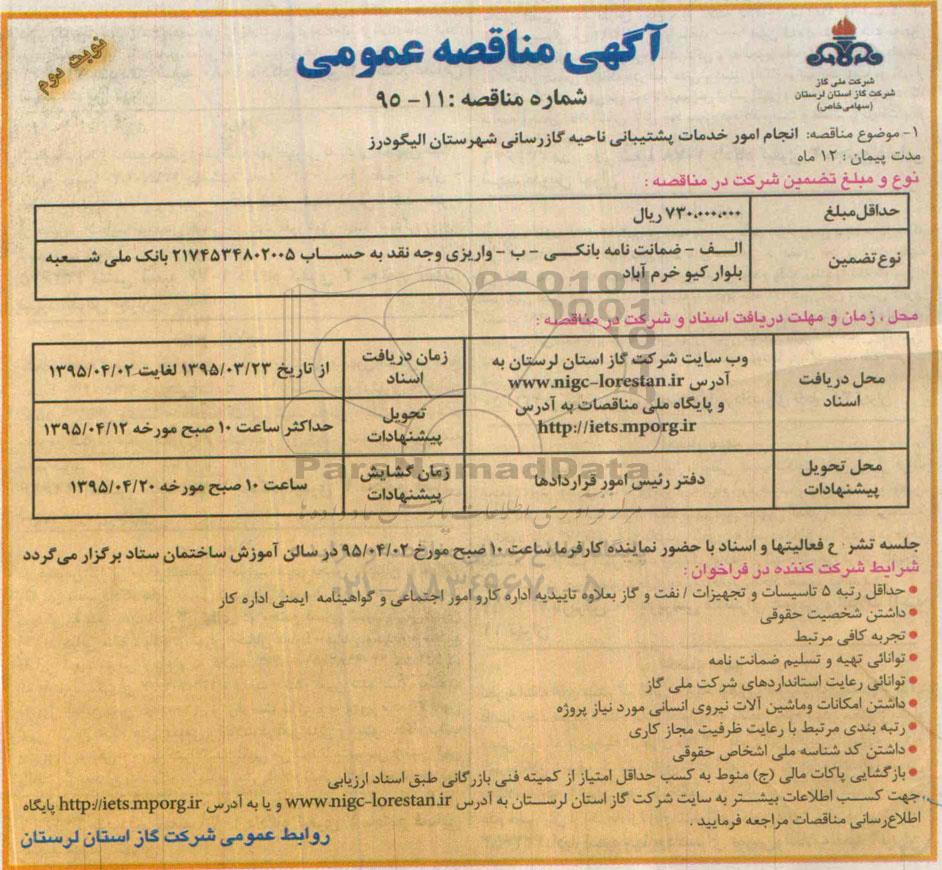 نوبت دوم
آگهی مناقصه عمومی
شرکت ملی گاز
شرکت گاز استان لرستان
(سهامی خاص)
شماره مناقصه : ۱۱- ۹۵
۱- موضوع مناقصه: انجام امور خدمات پشتیبانی ناحیه گازرسانی شهرستان الیگودرز
مدت پیمان : ۱۲ ماه
نوع و مبلغ تضمین شرکت در مناقصه :
حداقل مبلغ
۷۳۰،۰۰۰،۰۰۰ ریال
نوع تضمین
الف - ضمانت نامه بانکی - ب - واریزی وجه نقد به حساب ۲۱۷۴۵۳۴۸۰۲۰۰۵ بانک ملی شعبه
بلوار کیو خرم آباد
محل ، زمان و مهلت دریافت اسناد و شرکت در مناقصه :
محل دریافت
اسناد
وب سایت شرکت گاز استان لرستان به
آدرس www.nigc-lorestan.ir
و پایگاه ملی مناقصات به آدرس
http://iets.mporg.ir
زمان دریافت
اسناد
از تاریخ ۱۳۹۵/۰۳/۲۳ لغایت ۱۳۹۵/۰۴/۰۲
تحویل
پیشنهادات
حداکثر ساعت ۱۰ صبح مورخه ۱۳۹۵/۰۴/۱۲
محل تحویل
پیشنهادات
دفتر رئیس امور قراردادها
زمان گشایش
پیشنهادات
ساعت ۱۰ صبح مورخه ۱۳۹۵/۰۴/۲۰
ParsNamadData
جلسه فعالیتها و اسناد با حضور نماینده کارفرما ساعت ۱۰ صبح مورخ ۹۵/۰۴/۰۲ در سالن آموزش ساختمان ستاد برگزار می گردد
شرایط شرکت کننده در فراخوان :
● حداقل رتبه ۵ تاسیسات و تجهیزات / نفت و گاز بعلاوه تاییدیه اداره کارو امور اجتماعی و گواهینامه ایمنی اداره کار
● داشتن شخصیت حقوقی
● تجربه کافی مرتبط
● توانائی تهیه و تسلیم ضمانت نامه
● توانائی رعایت استانداردهای شرکت ملی گاز
● داشتن امکانات وماشین آلات نیروی انسانی مورد نیاز پروژه
● رتبه بندی مرتبط با رعایت ظرفیت مجاز کاری
● داشتن کد شناسه ملی اشخاص حقوقی
● بازگشایی پاکات مالی (ج) منوط به کسب حداقل امتیاز از کمیته فنی بازرگانی طبق اسناد ارزیابی
جهت کسب اطلاعات بیشتر به سایت شرکت گاز استان لرستان به آدرس www.nigc-lorestan.ir و یا به آدرس http://iets.mporg.ir پایگاه
اطلاع رسانی مناقصات مراجعه فرمایید .
روابط عمومی شرکت گاز استان لرستان